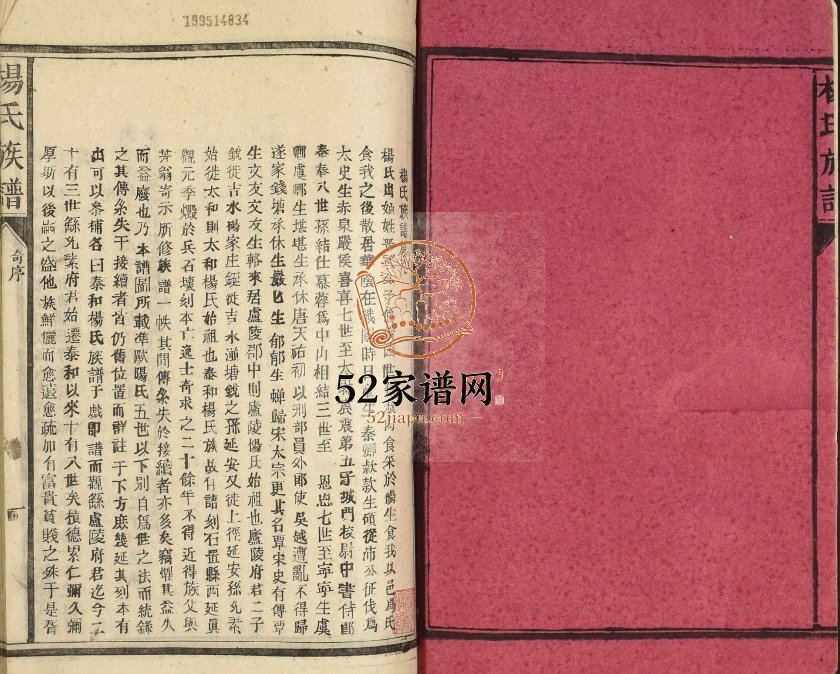 199514834
楊氏族譜
奇序
一
楊氏族譜
楊氏出姬姓晉 食采於楊生食我以邑爲氏
食我之後散居華陰在戰 時曰 生 秦卿款款生碩從沛 征伐爲
太史生赤泉嚴侯喜喜七世至太 震 第五子 城門校尉中書侍郎
奉奉八世孫結仕慕蓉爲中山相結三世至 恩恩七世至寧寧生虞
卿虞卿生堪堪生承休唐天祐初以刑部員外郎使吳越遭亂不得歸
遂家錢塘承休生巖巖生郁郁生蟬歸宋太宗更其名覃宋史有傳覃
生文友文友生輅來居盧陵郡中則盧陵楊氏始祖也廬陵府君二子
銳徙吉水楊家庄鋋徙吉水湴塘銳之孫延安又徙上徑延安孫允素
始徙太和則太和楊氏始祖也泰和楊氏族故有譜刻石置縣西延眞
觀元季燬於兵石壞刻本亡逸士奇求之二十餘年不得近得族父與
芳翁寄示所修族譜一帙其間傳系失於接續者亦多矣竊懼其益久
而益廢也乃本譜圖所載準歐陽氏五世以下別自爲世之法而統錄
之其傳系失于接續者皆仍舊位置而詳註于下方庶幾延其刻本有
出可以參補名曰泰和楊氏族譜于戲卽譜而觀繇盧陵府君迄今二
十有三世繇允素府君始遷泰和以來十有八世矣積德累仁彌久彌
厚所以後 之盛他族鮮儷而愈遠愈疏加有富貴貧賤之殊于是有
楊氏族譜
52家谱网
52jiapu.com